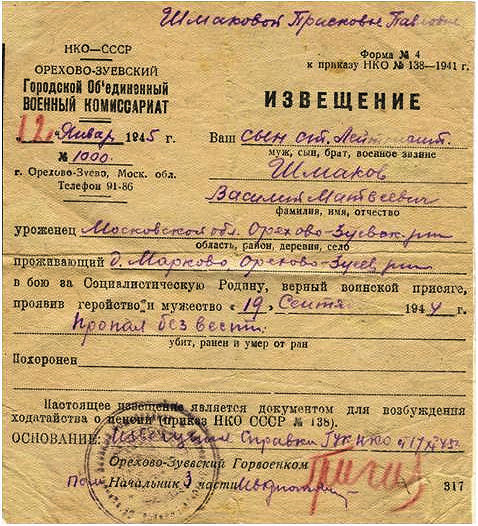 Шмаковой Присковье Павловне
НКО—СССР
ОРЕХОВО-ЗУЕВСКИЙ
Городской Об'единенный
ВОЕННЫЙ КОМИССАРИАТ
„12“ Январ 1945 г.
№ 1000.
г. Орехово-Зуево, Моск. обл.
Телефон 91-86
Форма № 4
к приказу НКО № 138—1941 г.
ИЗВЕЩЕНИЕ
Ваш сын ст. Лейтенант.
муж, сын, брат, военное звание
Шмаков
Василий Матвеевич
фамилия, имя, отчество
уроженец Московской обл. Орехово-Зуевск. р-н
область, район, деревня, село
проживающий д. Марково Орехово-Зуев. р-н
в бою за Социалистическую Родину, верный воинской присяге,
проявив геройство и мужество „19“ Сентя 1944 г.
Пропал без вести.
убит, ранен и умер от ран
Похоронен
Настоящее извещение является документом для возбуждения
ходатайства о пенсии (приказ НКО СССР № 138).
ОСНОВАНИЕ: Справка ГУК НКО
Орехово-Зуевский Горвоенком
Пом Начальник 3 части
317